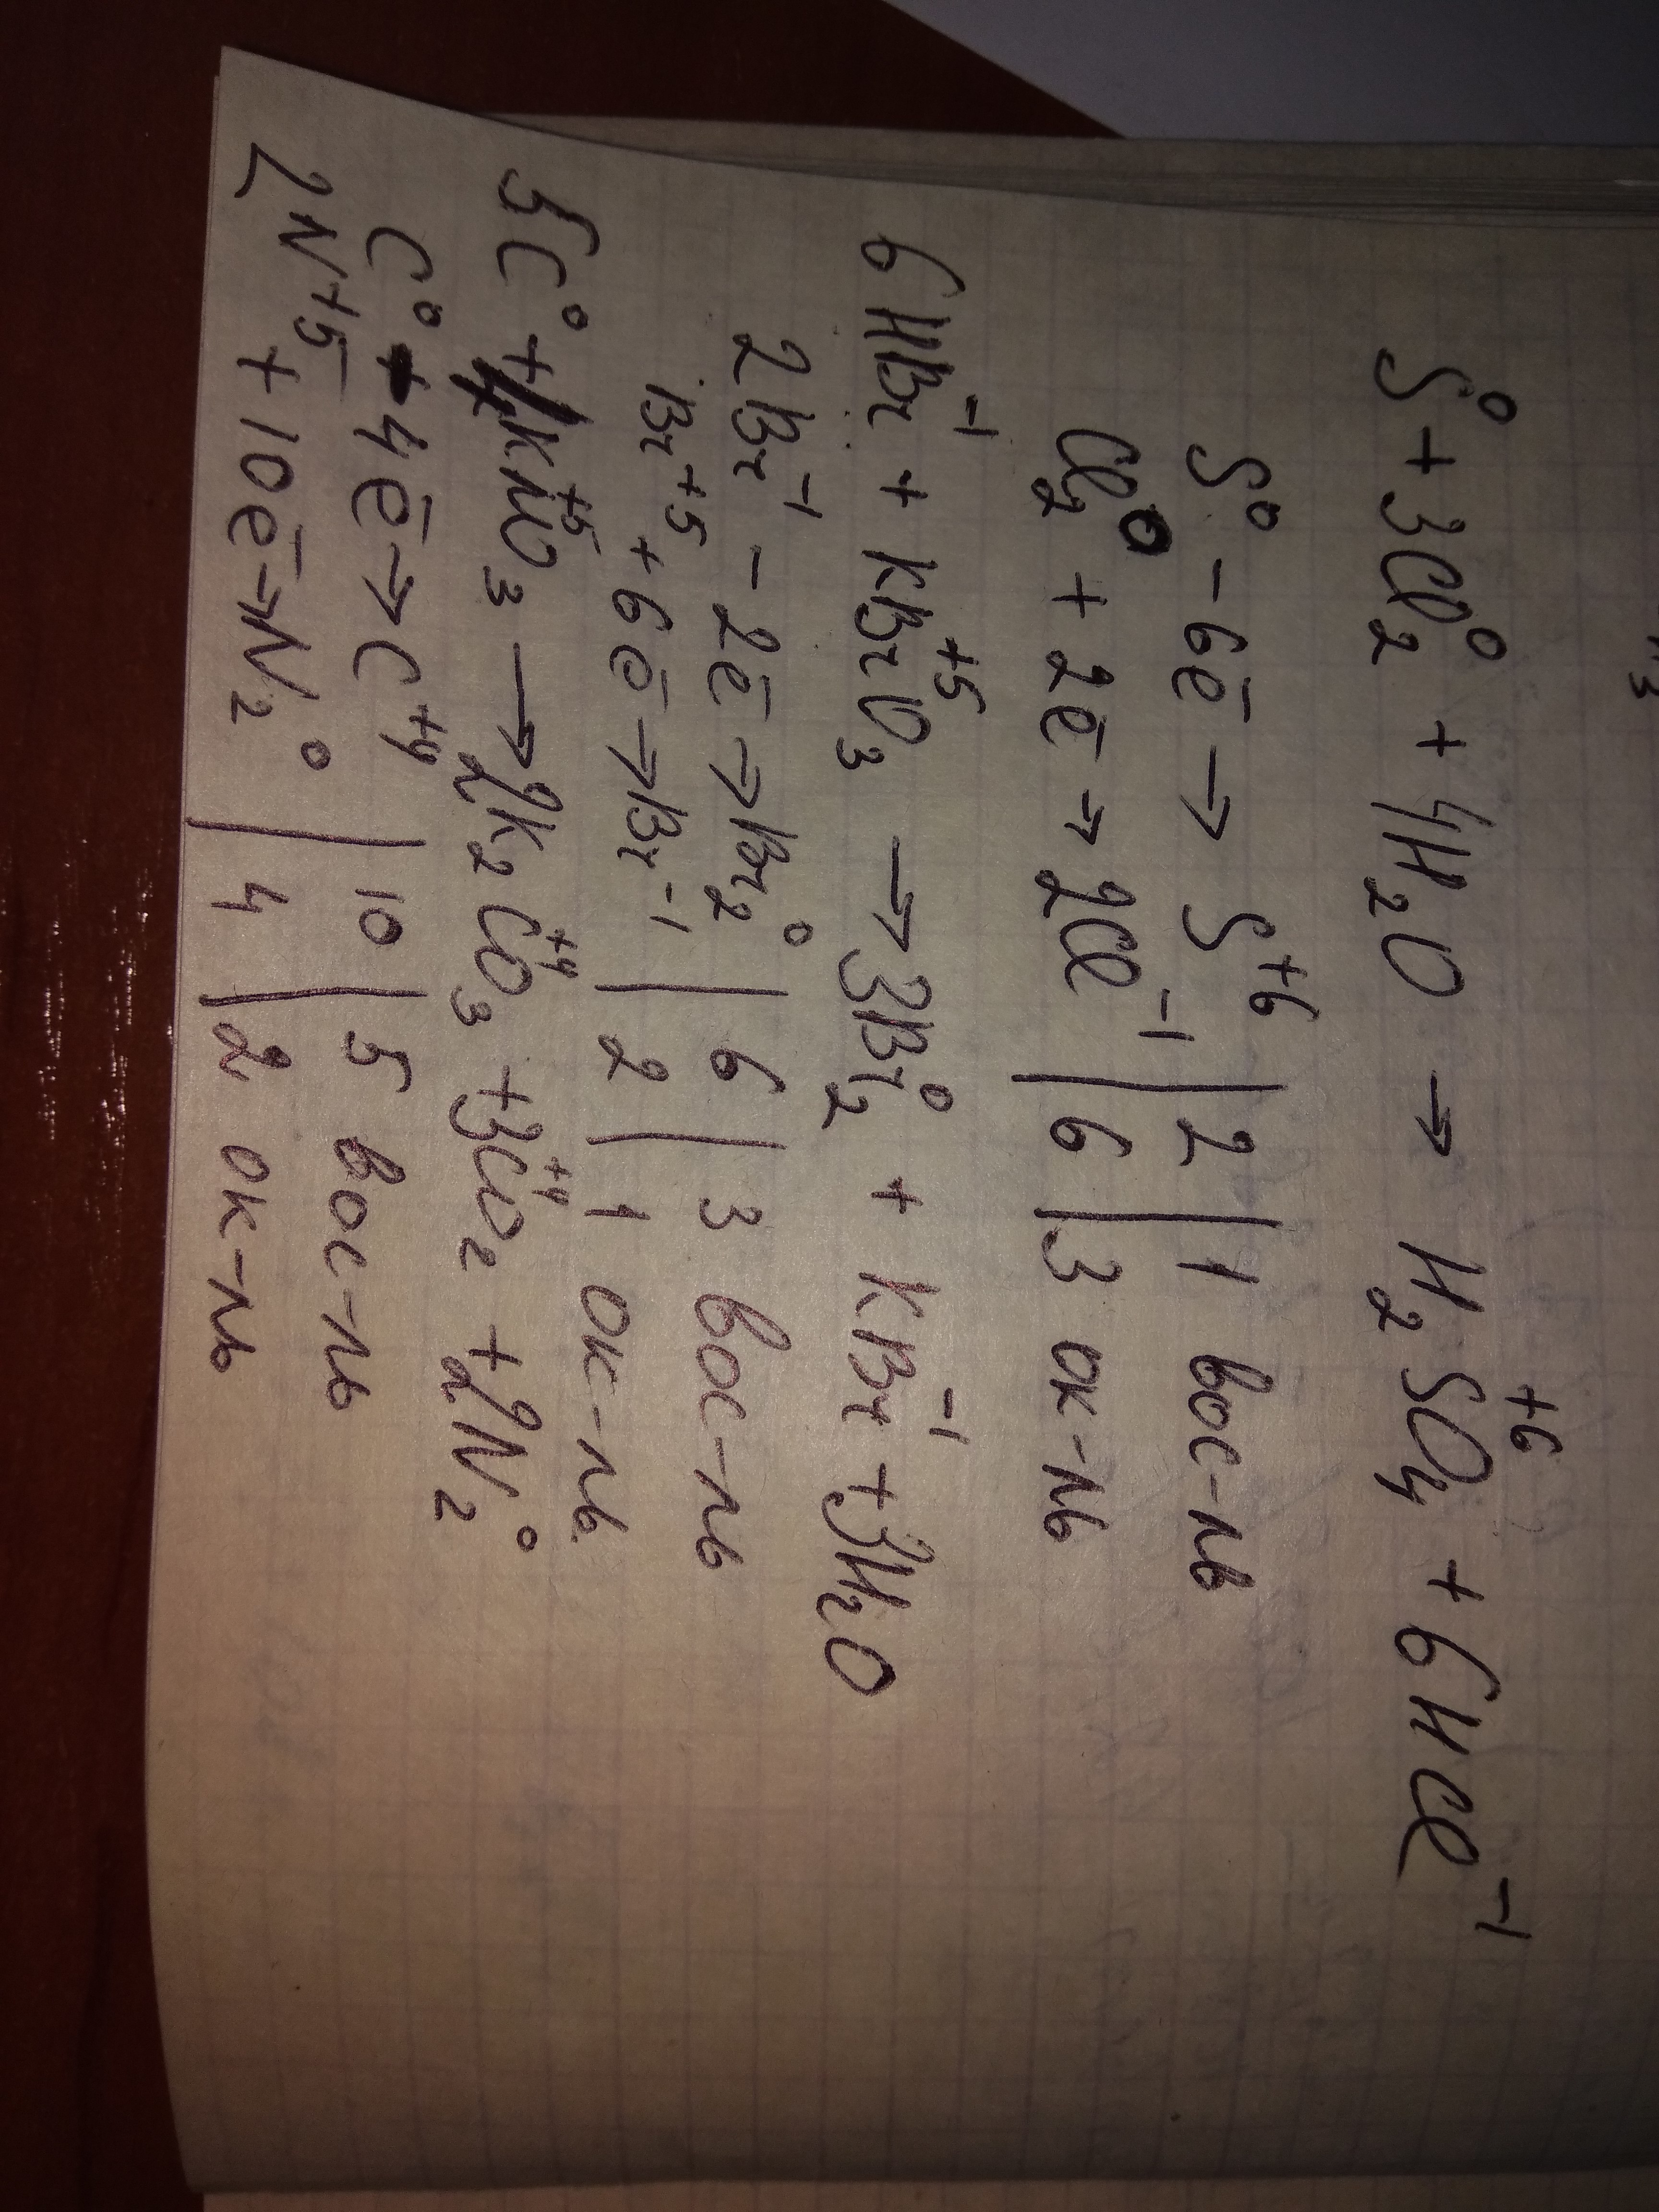 S⁰ + 3Cl₂⁰ + 4H₂O → H₂S⁺⁶O₄ + 6HCl⁻¹
S⁰ - 6e̅ → S⁺⁶ | 2 | 1 вос-ль
Cl₂⁰ + 2e̅ → 2Cl⁻¹ | 6 | 3 ок-ль
6HBr⁻¹ + KBr⁺⁵O₃ → 3Br₂⁰ + KBr⁻¹ + 3H₂O
2Br⁻¹ - 2e̅ → Br₂⁰ | 6 | 3 вос-ль
Br⁺⁵ + 6e̅ → Br⁻¹ | 2 | 1 ок-ль
5C⁰ + 4KN⁺⁵O₃ → 2K₂C⁺⁴O₃ + 3C⁺⁴O₂ + 2N₂⁰
C⁰ - 4e̅ → C⁺⁴ | 10 | 5 вос-ль
2N⁺⁵ + 10e̅ → N₂⁰ | 4 | 2 ок-ль